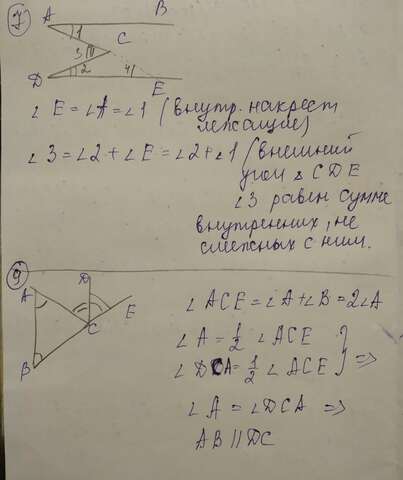 7
A B
1
C
3
D 2 4 E
∠E = ∠A = ∠1 (внутр. накрест
лежащие)
∠3 = ∠2 + ∠E = ∠2 + ∠1 (внешний
угол △ CDE
∠3 равен сумме
внутренних, не
смежных с ним.
9
D
A
E
C
B
∠ACE = ∠A + ∠B = 2∠A
∠A = 1/2 ∠ACE
∠DCA = 1/2 ∠ACE } =>
∠A = ∠DCA =>
AB || DC